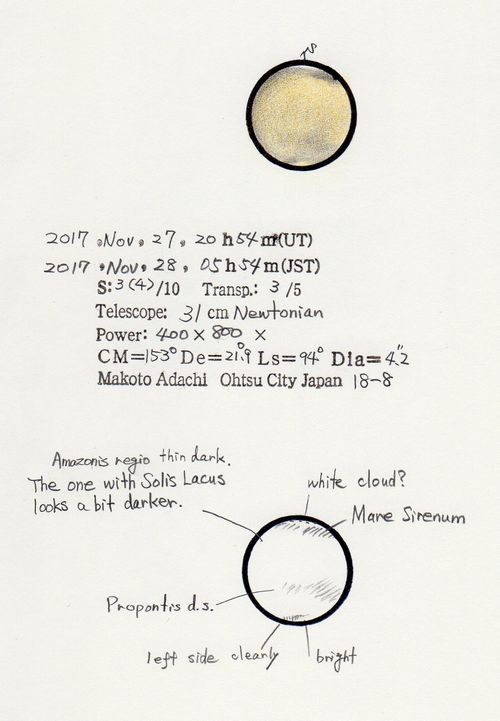 S
2017 . Nov. 27, 20 h 54 m(UT)
2017 . Nov. 28, 05 h 54 m(JST)
S: 3(4)/10 Transp.: 3 /5
Telescope: 31 cm Newtonian
Power: 400 × 800 ×
CM=153° De=21.9° Ls=94° Dia=4.2"
Makoto Adachi Ohtsu City Japan 18-8
Amazonis regio thin dark.
The one with Solis Lacus
looks a bit darker.
white cloud?
Mare Sirenum
Propontis d.s.
left side clearly
bright